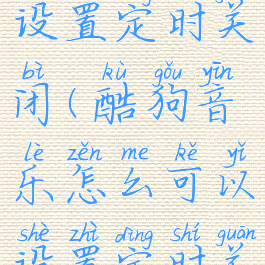 设置定时关
bì kù gǒu yīn
闭(酷狗音
lè zěn me kě yǐ
乐怎么可以
shè zhì dìng shí guān
设置定时关